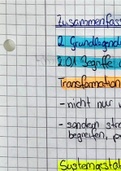 Zusammenfass
2 Grundlagend
2.01 Begriffe
Transformation
- nicht nur
- sondern
begreifen,
Systemgestal